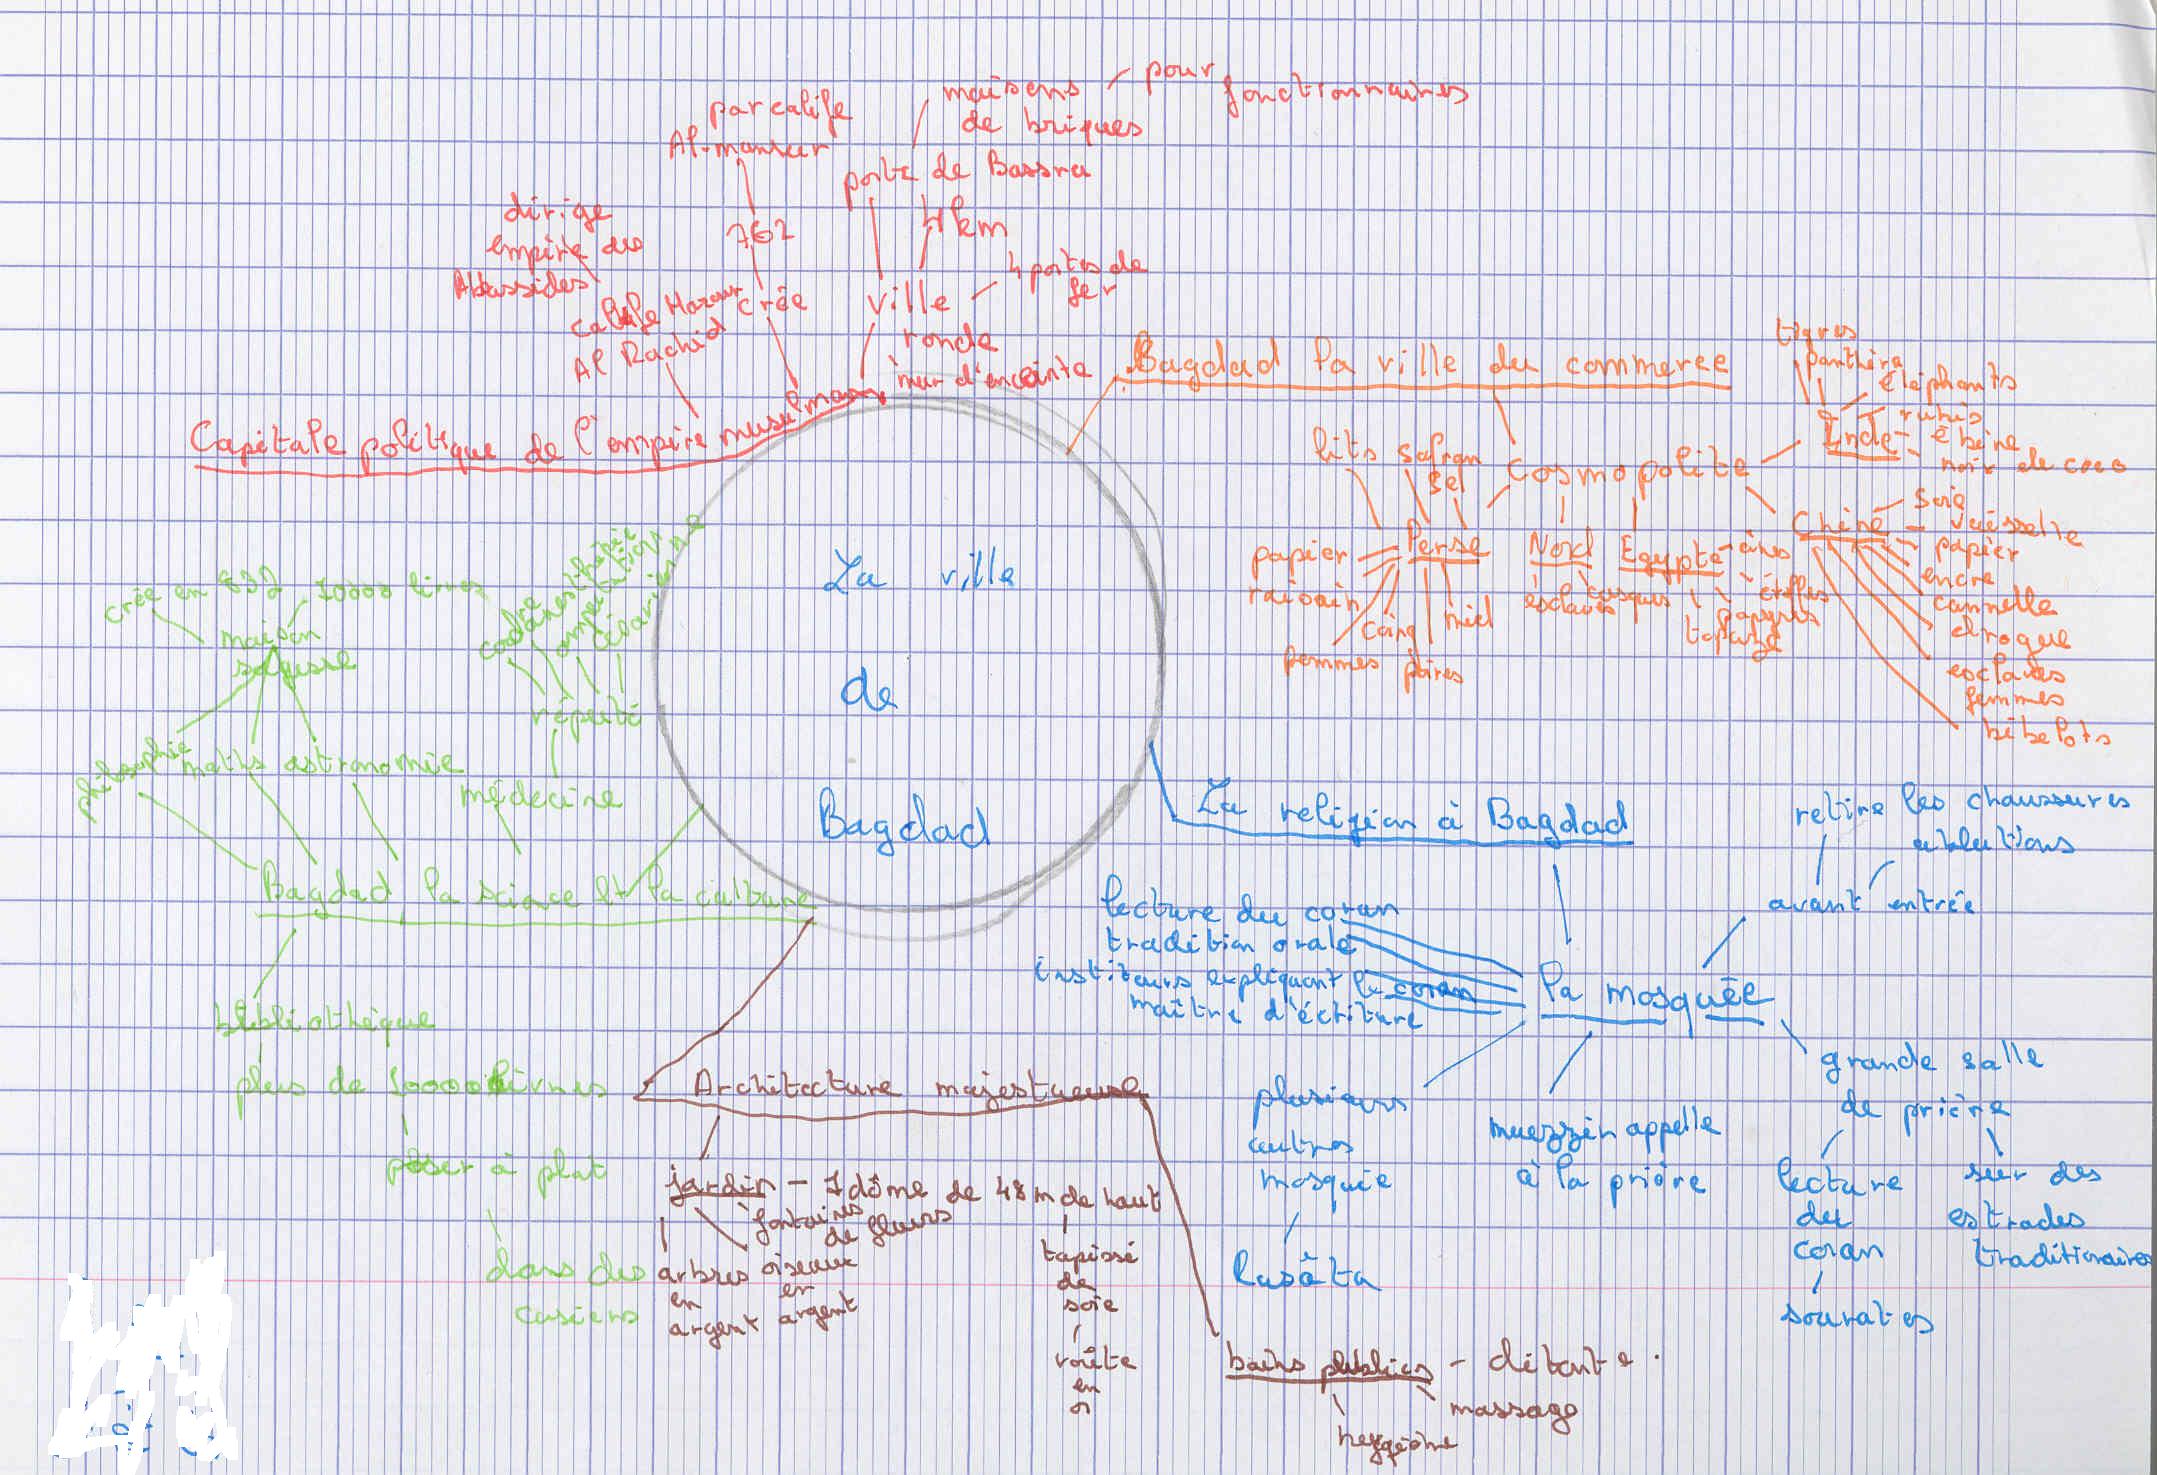 maisons
pour
fonctionnaires
de briques
par calife
Al-mansur
porte de Bassra
dirige
empire des
Abassides
762
4 km
4 portes de
fer
calife Haroun
Al Rachid
crée
ville
ronde
mur d'enceinte
Capitale politique de l'empire musulman
Bagdad la ville du commerce
cosmopolite
lits
safran
sel
Perse
papier
raisin
coing
miel
pommes
poires
Nord
esclaves
casques
Egypte
ânes
étoffes
papyrus
topaze
tigres
panthère
éléphants
rubis
Inde
ébène
noix de coco
Chine
soie
vaisselle
papier
encre
cannelle
drogue
esclaves
femmes
bibelots
La ville
de
Bagdad
crée en 832
10000 livres
maison
sagesse
philosophie
maths
astronomie
médecine
réputé
anesthésie
amputations
Bagdad la science et la culture
bibliothèque
plus de 10000 livres
poser à plat
dans des
casiers
La religion à Bagdad
retire les chaussures
ablutions
avant entrée
lecture du coran
tradition orale
expliquant le coran
maître d'écriture
la mosquée
plusieurs
autres
mosquée
Rusâta
muezzin appelle
à la prière
grande salle
de prière
lecture
du
coran
sourates
sur des
estrades
Architecture majestueuse
jardin - 1 dôme de 48 m de haut
fontaines
de fleurs
arbres
en
argent
oiseaux
en
argent
tapissé
de
soie
voûte
en
or
bains publics - détente
massage